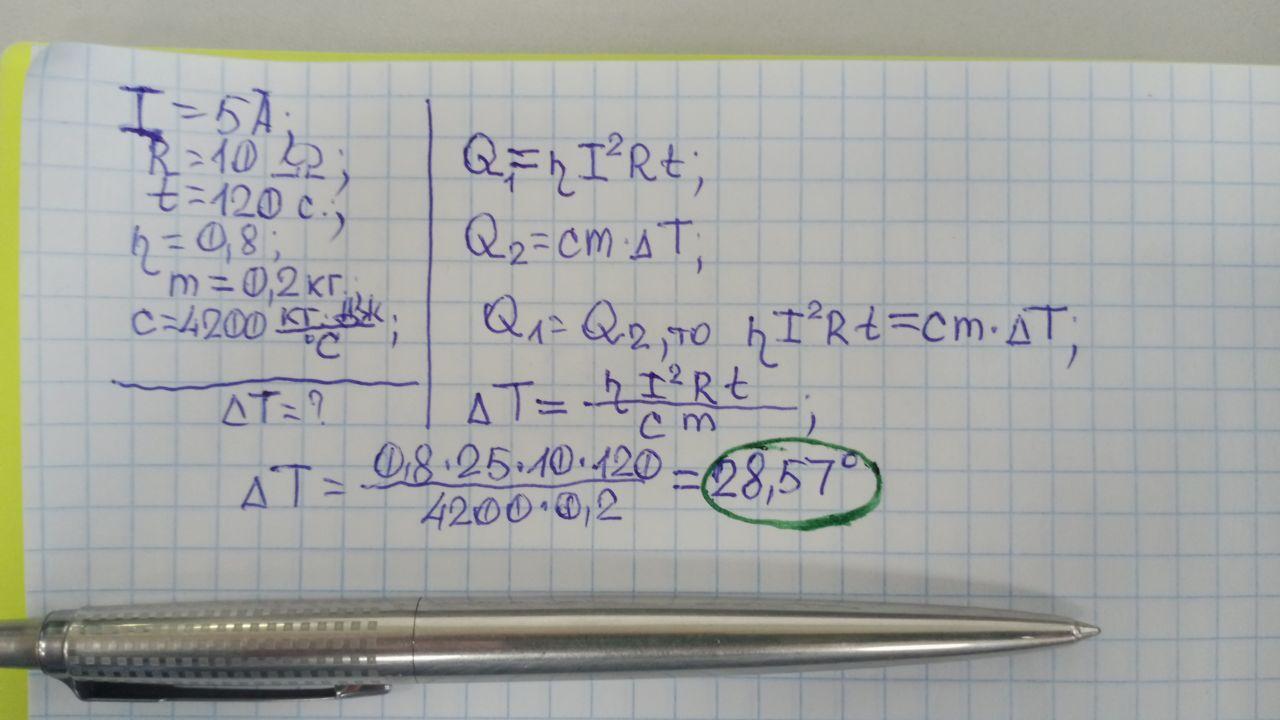 I = 5A;
R = 10 Ω;
t = 120 c.;
η = 0,8;
m = 0,2 кг.
c = 4200 кг·Дж/°C;
ΔT = ?
Q₁ = ηI²Rt;
Q₂ = cm·ΔT;
Q₁ = Q₂, то ηI²Rt = cm·ΔT;
ΔT = ηI²Rt/cm;
ΔT = 0,8·25·10·120/4200·0,2 = 28,57°